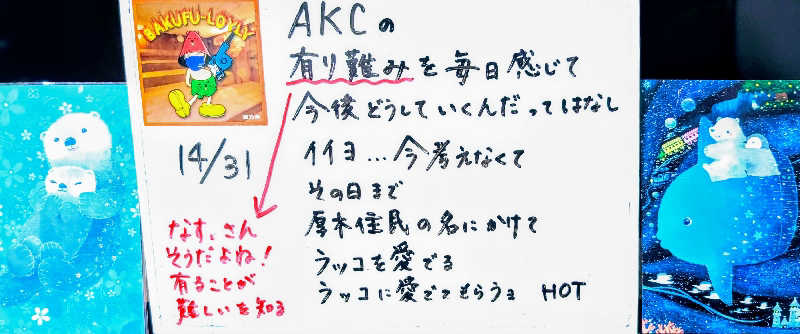 BAKUFU-LOYLY
AKCの
有り難みを毎日感じて
今後どうしていくんだってはなし
イイヨ…今考えなくて
その日まで
厚木住民の名にかけて
ラッコを愛でる
ラッコに愛でてもらうョ HOT
14/31
なす、さん
そうだよね!
有ることが
難しいを知る